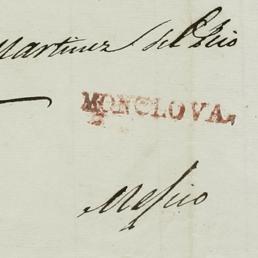 Martinez del Rio
MONCLOVA.
Mexico